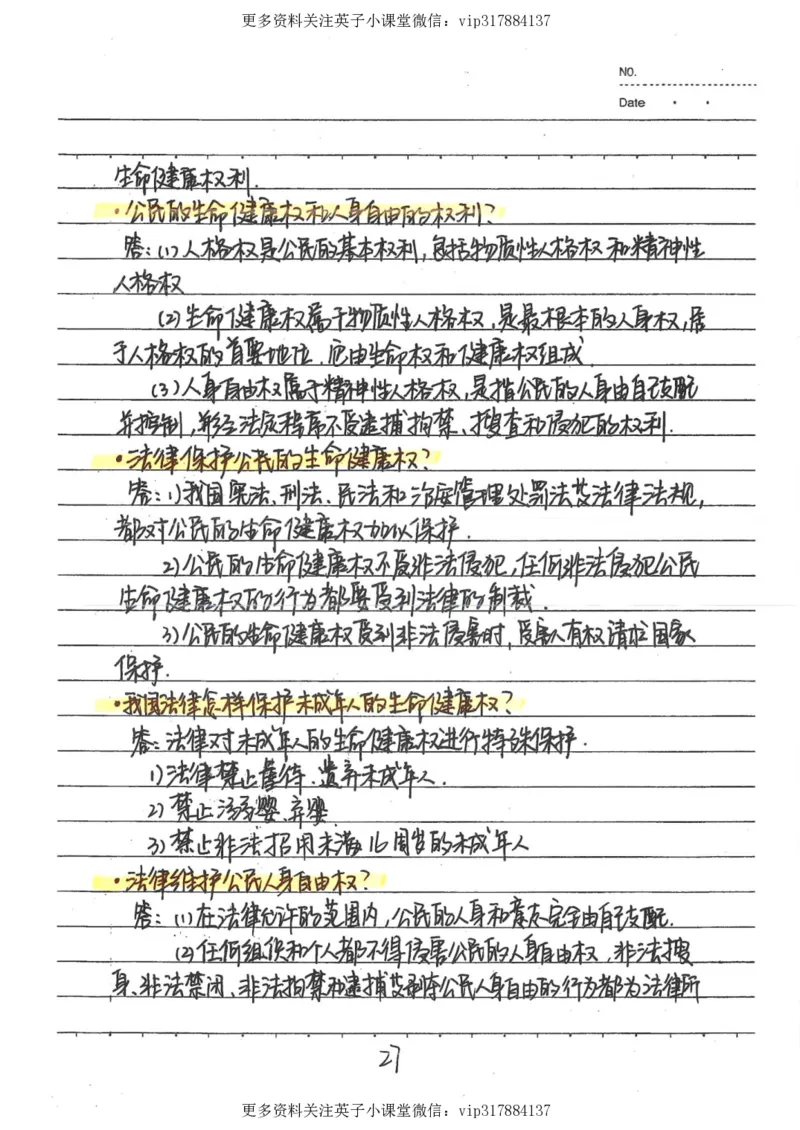 更多资料关注英子小课堂微信：vip317884137
NO.
Date
生命健康权利.
·公民的生命健康权和人身自由的权利？
答：(1)人格权是公民的基本权利，包括物质性人格权和精神性
人格权
(2)生命健康权属于物质性人格权，是最根本的人身权，居
于人格权的首要地位.它由生命权和健康权组成.
(3)人身自由权属于精神性人格权，是指公民的人身由自己支配
并控制，非经法定程序不受逮捕拘禁、搜查和侵犯的权利.
·法律保护公民的生命健康权？
答：1)我国宪法、刑法、民法和治安管理处罚法及法律法规，
都对公民的生命健康权加以保护.
2)公民的生命健康权不受非法侵犯，任何非法侵犯公民
生命健康权的行为都要受到法律的制裁.
3)公民的生命健康权受到非法侵害时，受害人有权请求国家
保护.
·我国法律怎样保护未成年人的生命健康权？
答：法律对未成年人的生命健康权进行特殊保护.
1)法律禁止虐待、遗弃未成年人.
2)禁止溺婴、弃婴.
3)禁止非法招用未满16周岁的未成年人
·法律维护公民人身自由权？
答：(1)在法律允许的范围内，公民的人身和意志完全由自己支配.
(2)任何组织和个人都不得侵害公民的人身自由权，非法搜
身、非法禁闭、非法拘禁和逮捕及剥夺公民人身自由的行为都为法律所
27
更多资料关注英子小课堂微信：vip317884137